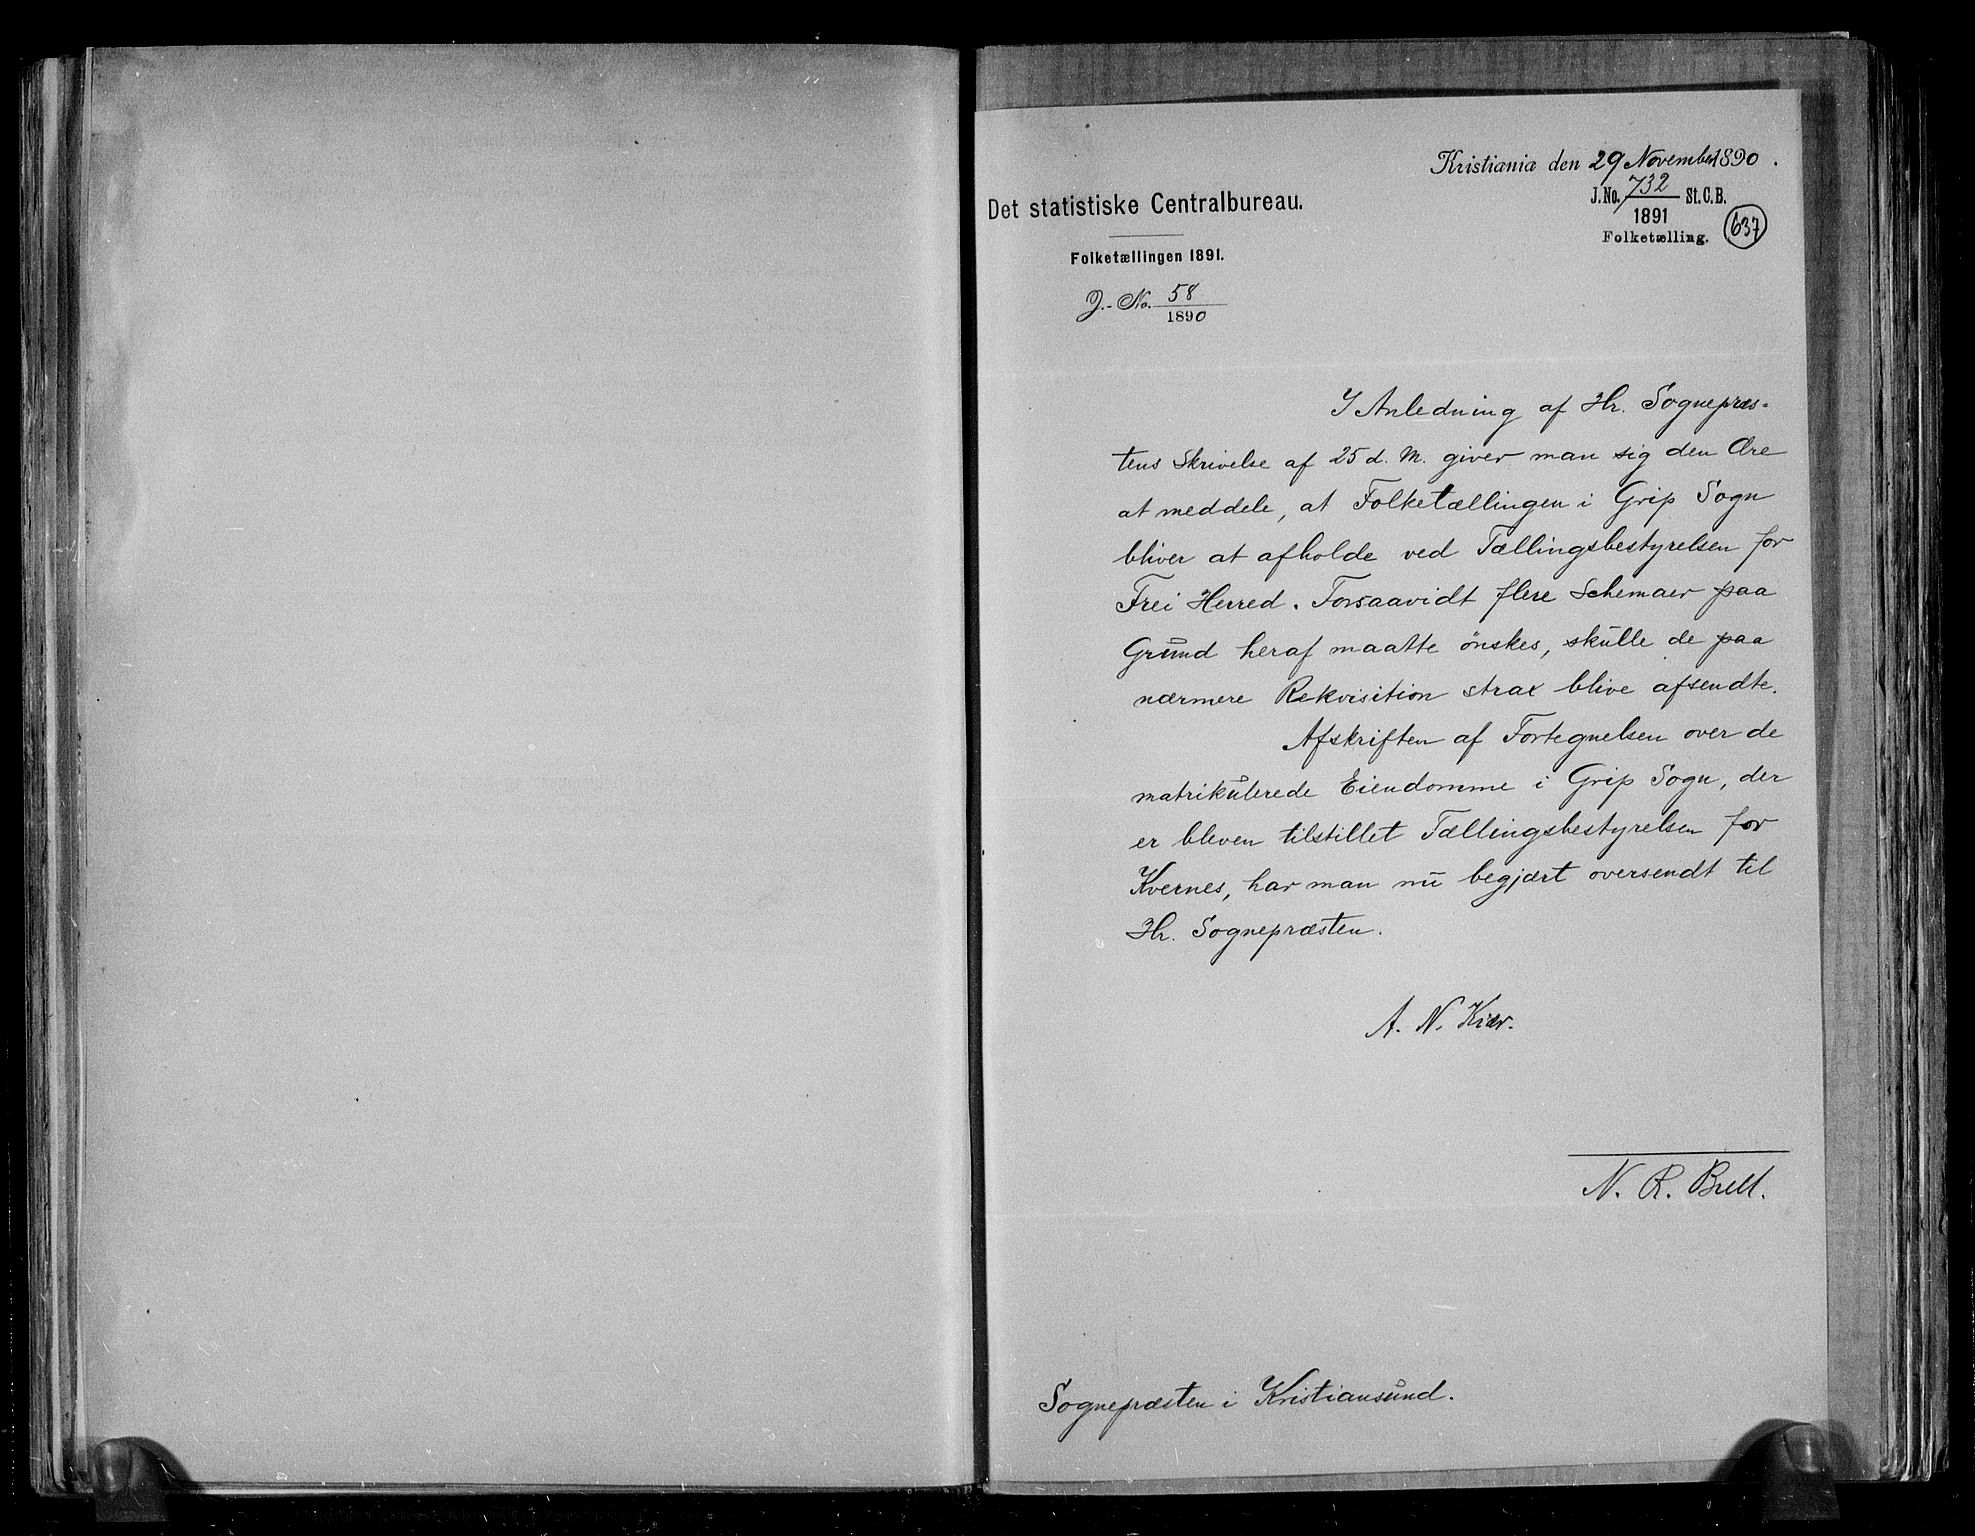 Kristiania den 29 November 1890.
Det statistiske Centralbureau.
J. No. 732 St. C. B.
1891
Folketælling.
637
Folketællingen 1891.
J.-No. 58
1890
I Anledning af Hr. Sognepræs-
tens Skrivelse af 25 d. M. giver man sig den Ære
at meddele, at Folketællingen i Grip Sogn
bliver at afholde ved Tællingsbestyrelsen for
Frei Herred. Forsaavidt flere Schemaer paa
Grund heraf maatte önskes, skulle de paa
nærmere Rekvisition strax blive afsendte.
Afskriften af Fortegnelsen over de
matrikulerede Eiendomme i Grip Sogn, der
er bleven tilstillet Tællingsbestyrelsen for
Kvernes, har man nu begjært oversendt til
Hr. Sognepræsten.
A. N. Kiær.
N. R. Bull.
Sognepræsten i Kristiansund.